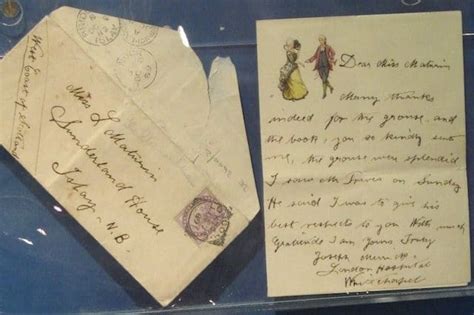 West Coast of Scotland
Miss L Maturin
Sunderland House
Islay - N.B.
Dear Miss Maturin
Many thanks
indeed for the grouse, and
the book, you so kindly sent
me, the grouse were splendid
I saw Mr Treves on Sunday
He said I was to give his
best respects to you With much
Gratitude I am Yours Truly
Joseph Merrick
London Hospital
Whitechapel